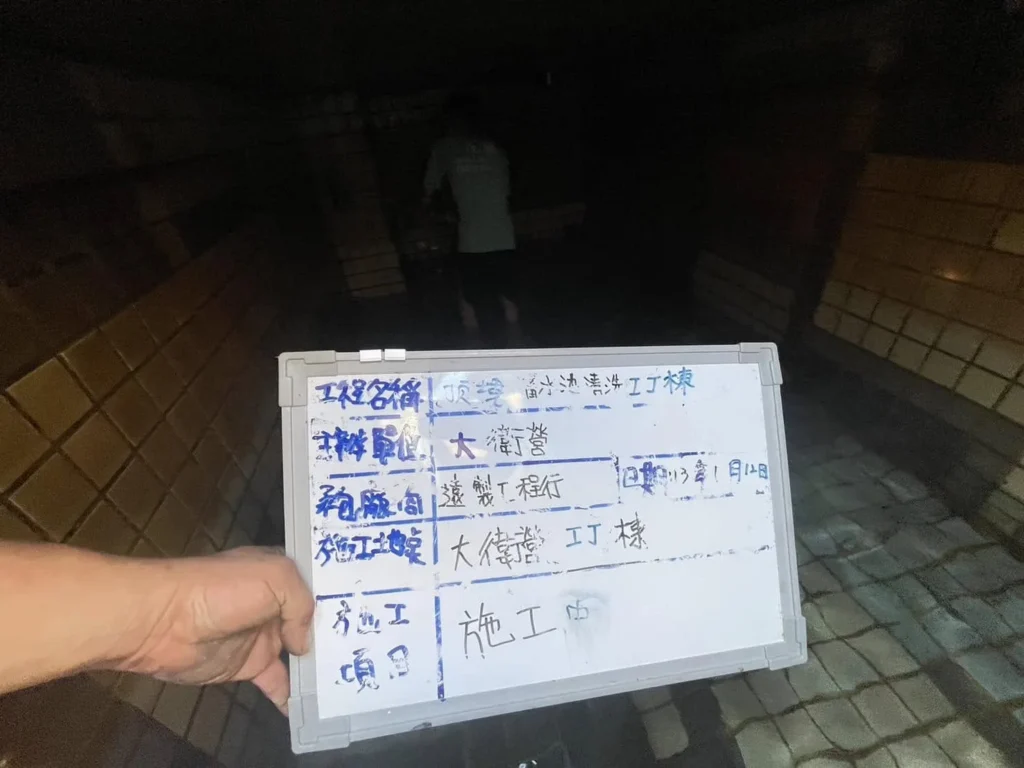 工程名稱 頂樓 蓄水池清洗 IJ棟
主辦單位 大衛營
承包廠商 遠製工程行 日期113年1月12日
施工地點 大衛營 IJ棟
施工項目 施工中